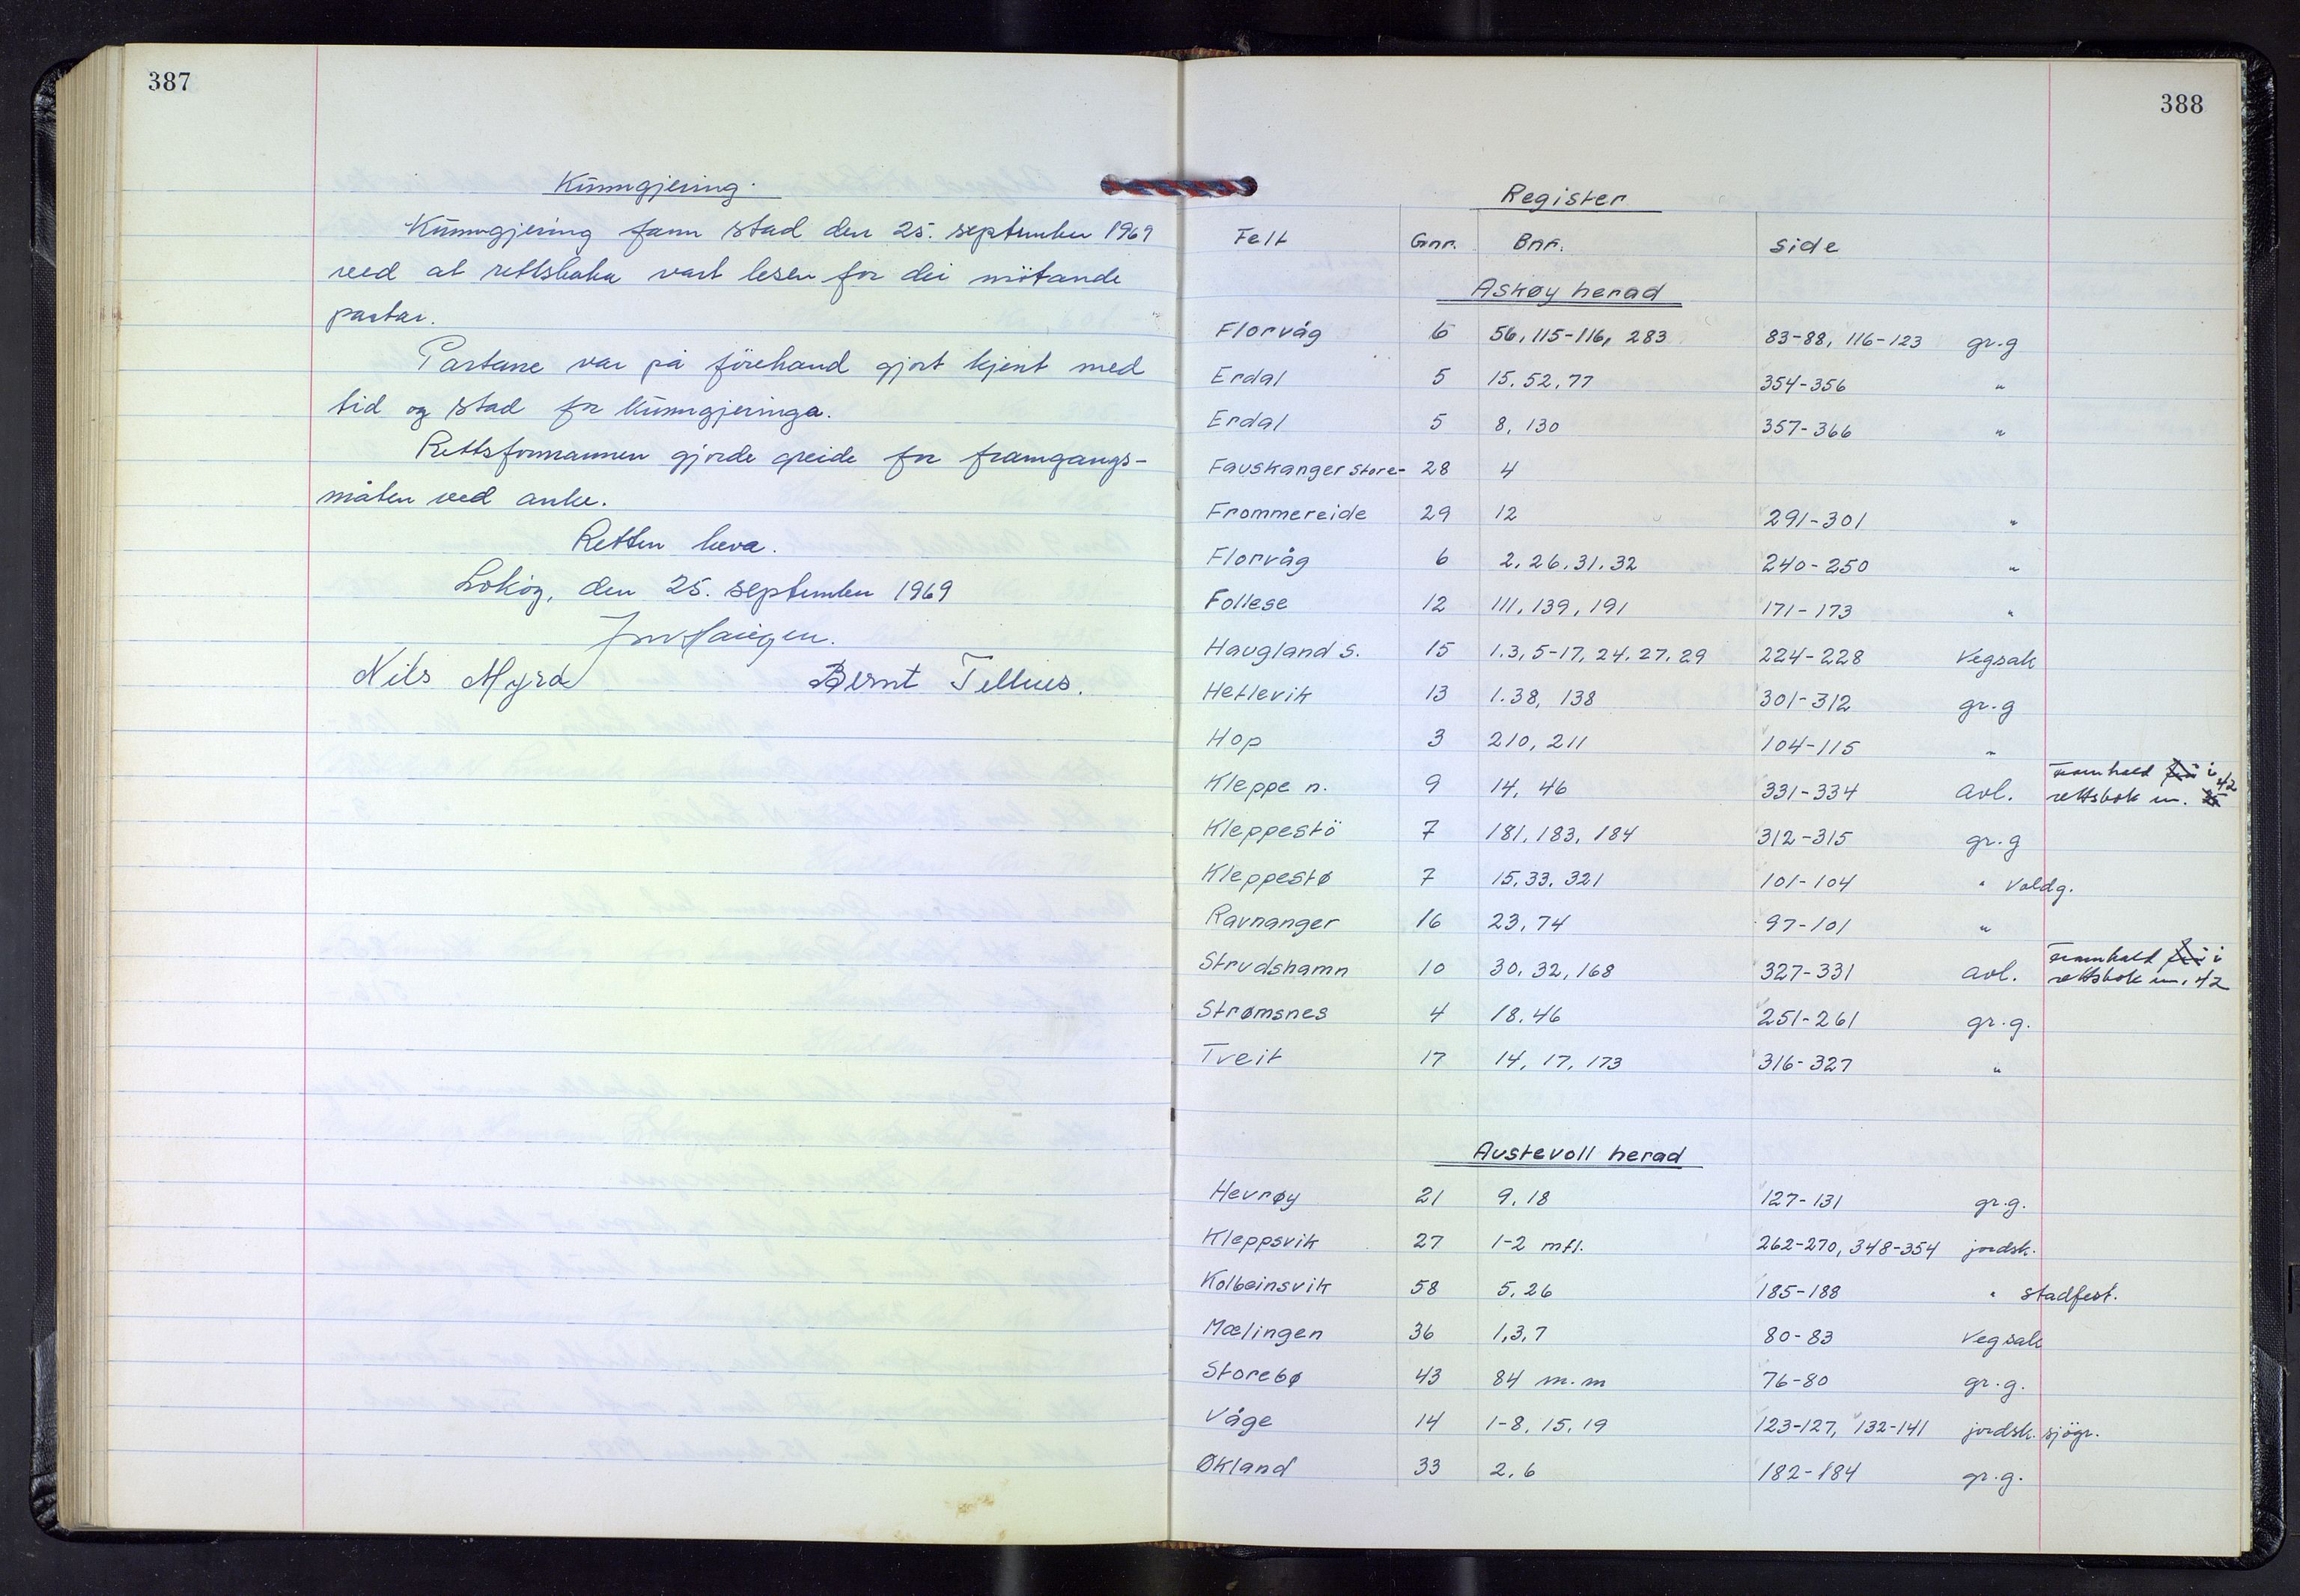 387
Kunngjering.
Kunngjering fann stad den 25. september 1969
ved at rettsboka vart lesen for dei møtande
partar.
Partane var på förehand gjort kjent med
tid og stad for kunngjeringa.
Rettsformannen gjorde greide for framgangs-
måten ved anke.
Retten heva.
den 25. september 1969
Nils Myrd
Bernt Tellnes.
388
Register
Felt Gnr. Bnr. side
Askøy herad
Florvåg 6 56, 115-116, 283 83-88, 116-123 gr.g
Erdal 5 15, 52, 77 354-356 "
Erdal 5 8, 130 357-366 "
Fauskanger store- 28 4
Frommereide 29 12 291-301 "
Florvåg 6 2, 26, 31, 32 240-250 "
Follese 12 111, 139, 191 171-173 "
Haugland s. 15 1.3, 5-17, 24, 27, 29 224-228 Vegsak
Hetlevik 13 1.38, 138 301-312 gr.g
Hop 3 210, 211 104-115 "
Kleppe n. 9 14, 46 331-334 avl. framhald i rettsbok nr. 42
Kleppestö 7 181, 183, 184 312-315 gr.g
Kleppestø 7 15, 33, 321 101-104 " Voldg.
Ravnanger 16 23, 74 97-101 "
Strudshamn 10 30, 32, 168 327-331 avl. framhald i rettsbok nr. 42
Strømsnes 4 18, 46 251-261 gr.g.
Tveit 17 14, 17, 173 316-327 "
Austevoll herad
Hevrøy 21 9, 18 127-131 gr.g.
Kleppsvik 27 1-2 mfl. 262-270, 348-354 jordsk.
Kolbeinsvik 58 5, 26 185-188 " stadfest.
Mælingen 36 1, 3, 7 80-83 Vegsak
Storebø 43 84 m.m 76-80 gr.g.
Våge 14 1-8, 15, 19 123-127, 132-141 jordsk. sjögr.
Økland 33 2, 6 182-184 gr.g.